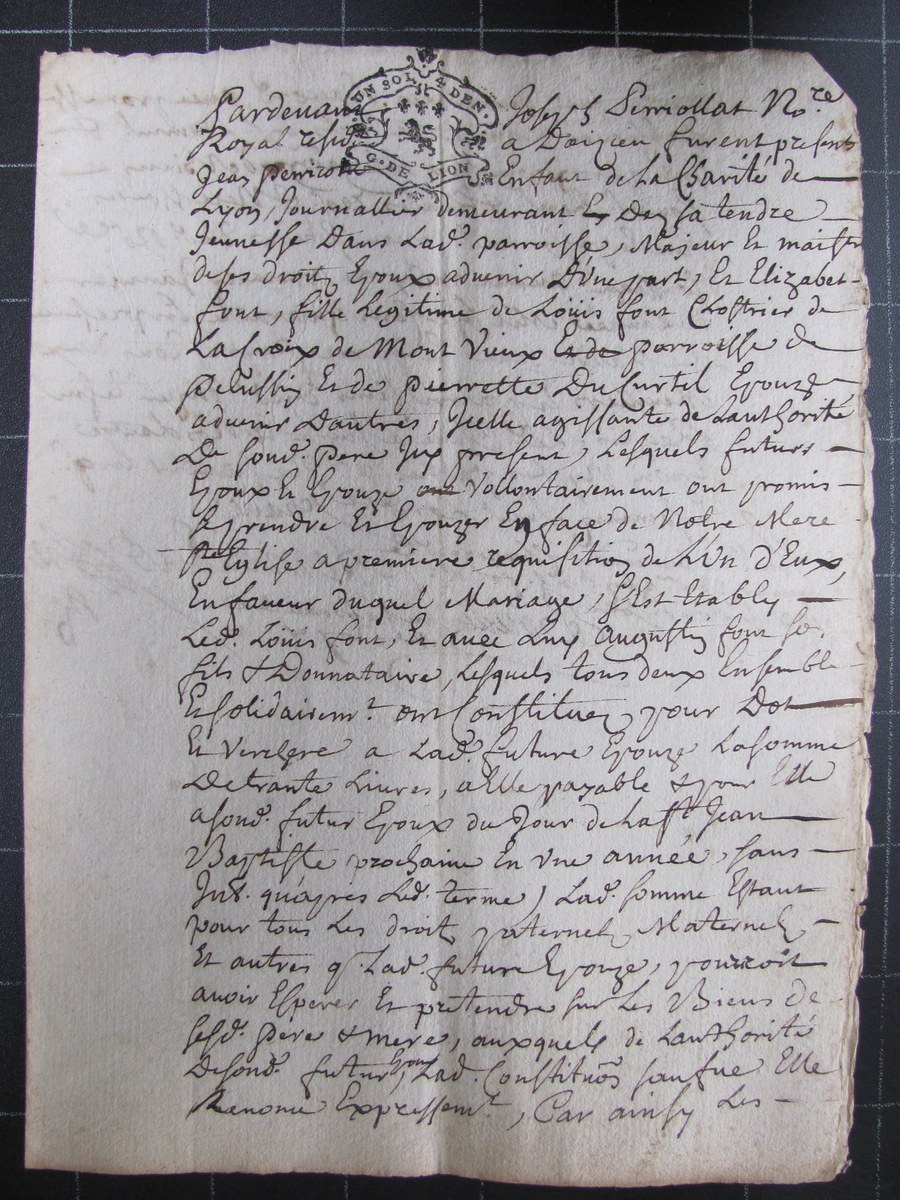 UN SOL 4 DEN.
G. DE LION
Pardevant Joseph Perriollat No.re
Royal resid. a Doizieu furent presents
Jean Enfant de la Charité de
Lyon, Journallier demeurant Des sa tendre
Jeunesse Dans Lad. parroisse, Majeur Et maistre
de ses droits Epoux advenir D'une part, Et Elizabet
font, fille Legitime de Loüis font de
La Croix de Mont Vieux Et de parroisse de
Pelussin Et de pierrette Ducurtil Epouze
advenir D'autres, Icelle agissante de Lauthorité
De sond. pere Icy present, Lesquels futurs
Epoux Et Epouze ont Vollontairement ont promis
Se prendre Et Epouzer En face de Notre Mere
Ste Eglise a premiere requisition de L'un d'Eux,
En faveur duquel Mariage, S'Est Etably
Led. Loüis font, Et avec Luy Augustin font so.
fils & Donnataire, Lesquels tous deux Ensemble
Et solidairem.t ont Constitués pour Dot
Et Verchere a Lad. future Epouze La somme
De trante Livres, a Elle payable & pour Elle
a sond. futur Epoux du Jour de La St Jean
Baptiste prochaine En une année, sans
Int. qu'apres Led. terme, Lad. somme Estant
pour tous Les droits paternels, Maternels,
Et autres q. Lad. future Epouze, pourroit
avoir Esperer Et pretendre sur Les Biens de
sesd. pere & mere, auxquels de Lauthorité
De sond. futur Epoux, Lad. Constituõn sauf ue Elle
Renonce Expressem.t, Car ainsy Les